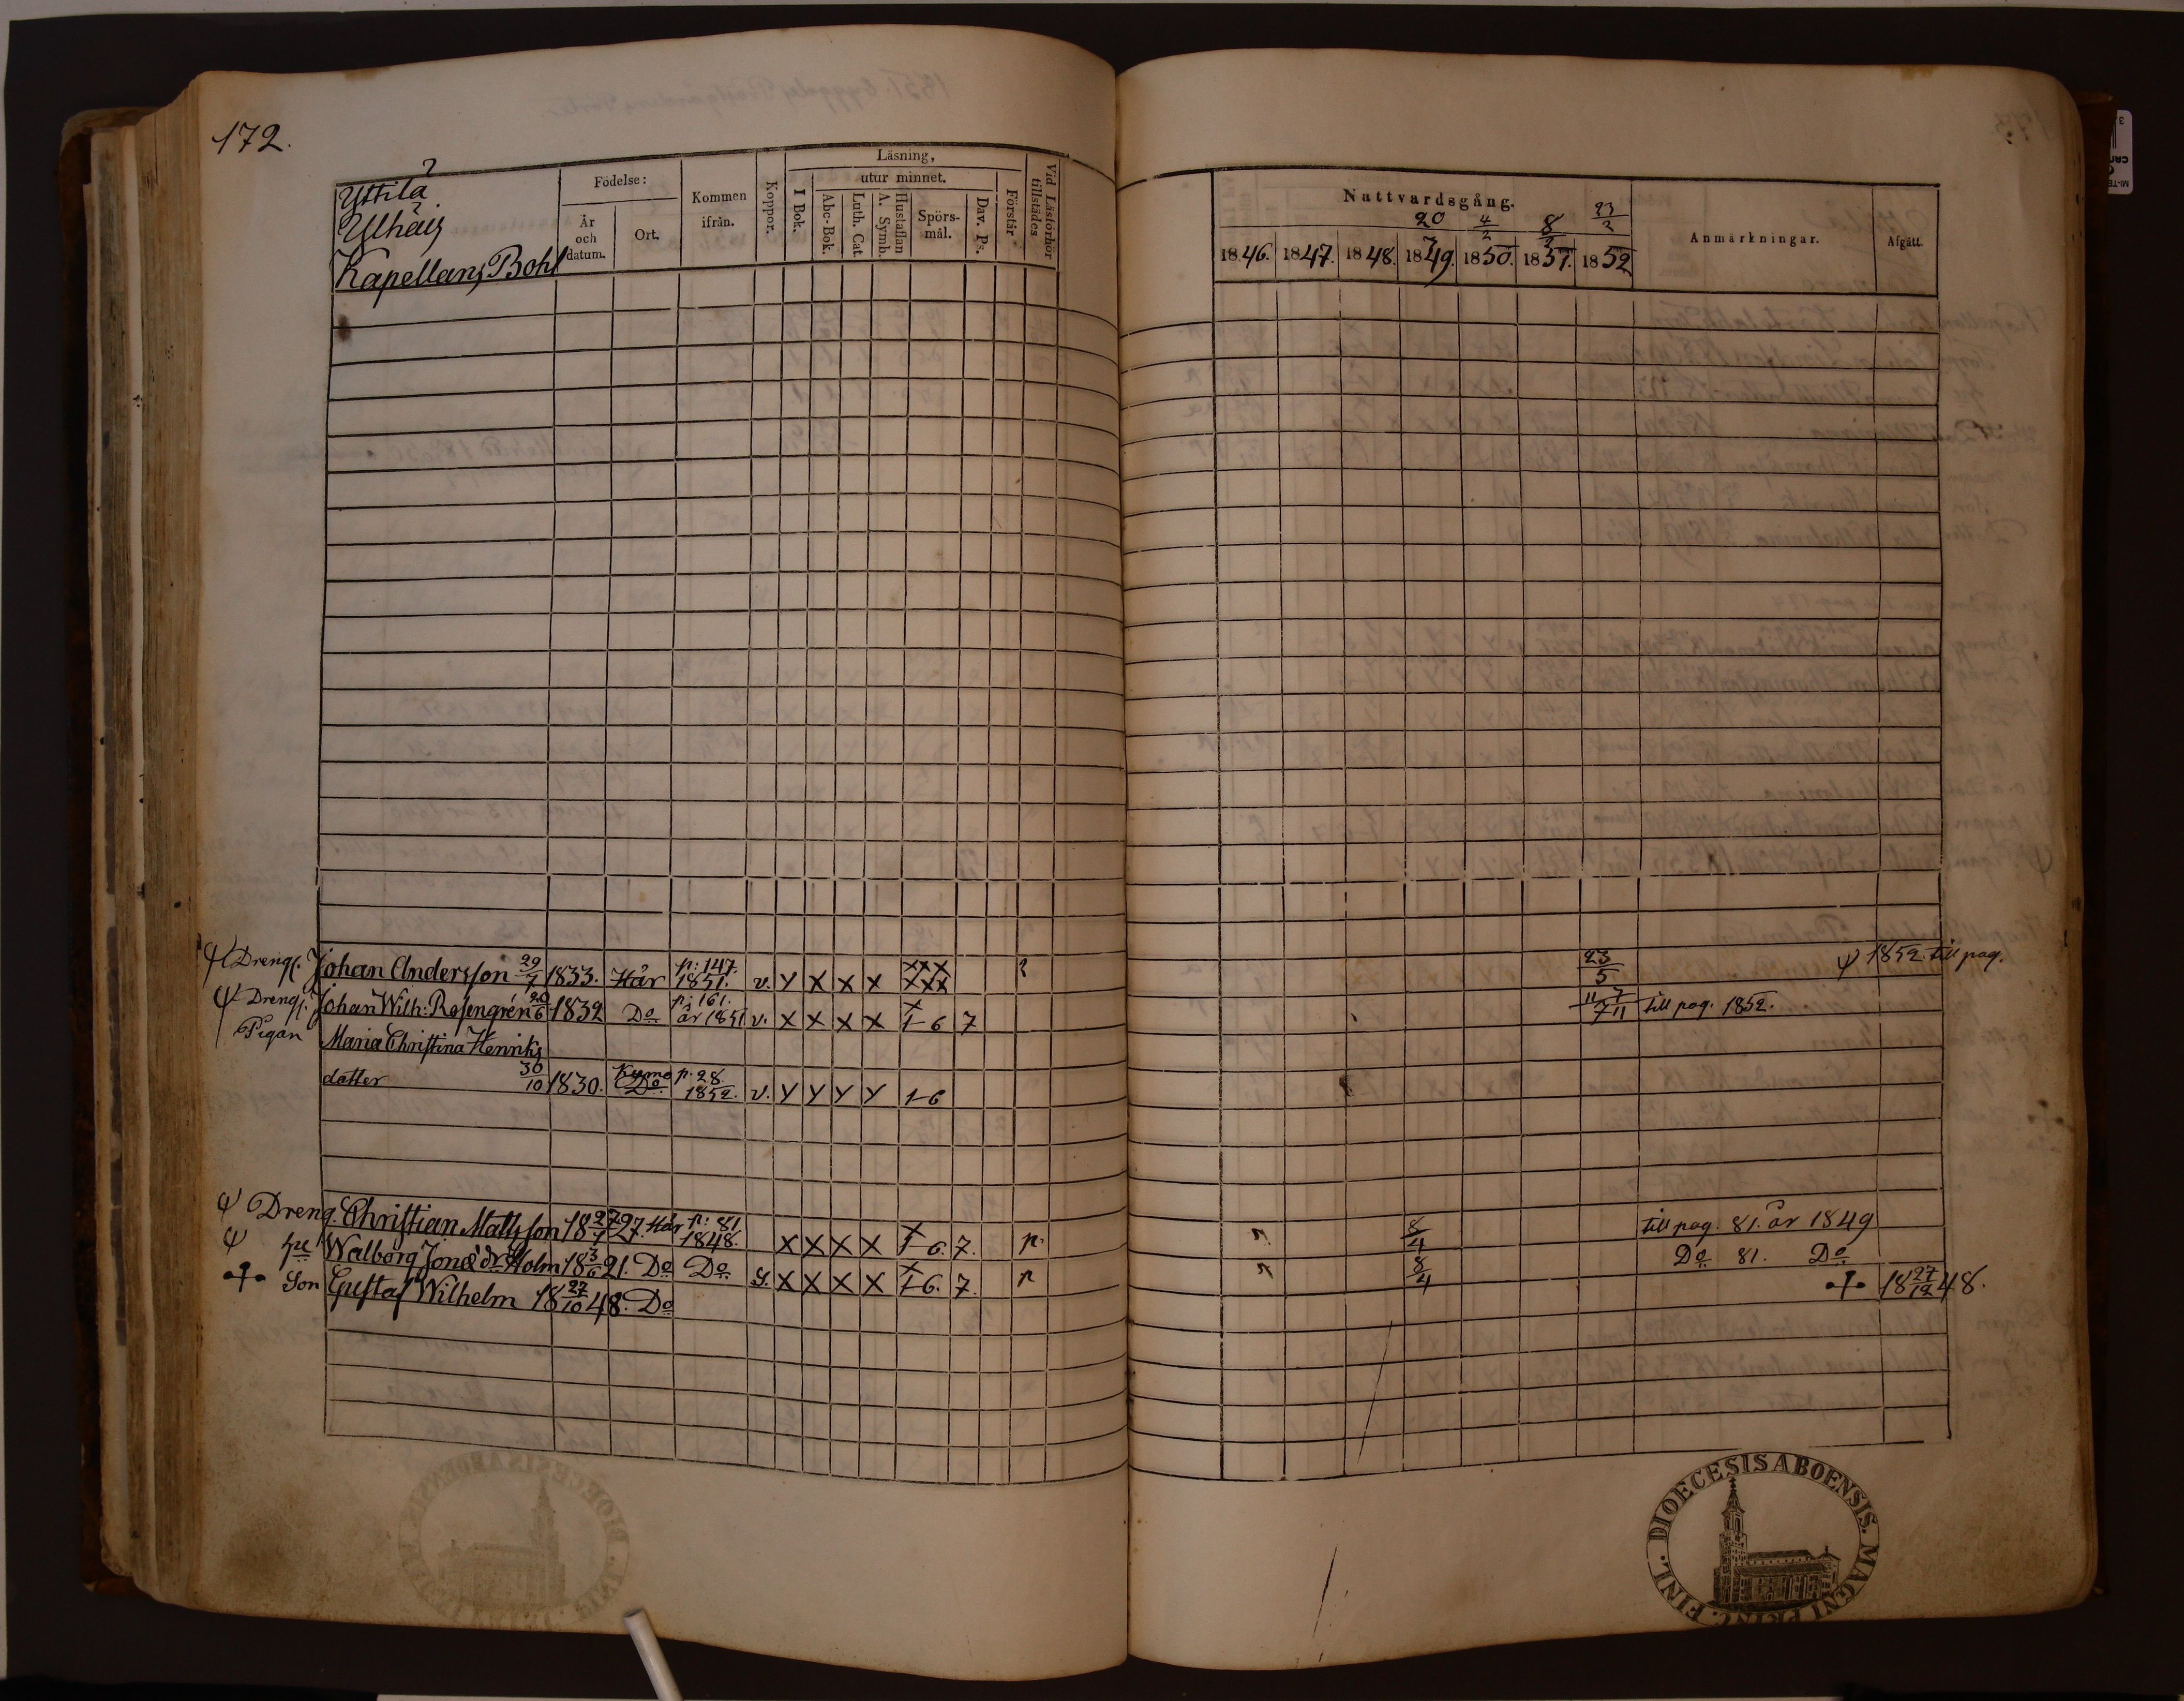 172.
Yttilä
Ylhäis
Kapellans Bohl
Födelse:
År och datum.
Ort.
Kommen ifrån.
Koppor.
Läsning,
I Bok.
utur minnet.
Abc-Bok.
Luth. Cat.
Hustaflan A. Symb.
Spörs-mål.
Dav. Ps.
Förstår
Vid Läsförhör tillstädes
Nattvardsgång.
20 4/2 8 23/2
1846. 1847. 1848. 1849. 1850. 1851. 1852
Anmärkningar.
Afgått.
Ψ Drengs. Johan Andersson 29/7 1833. Här p: 147. 1851. v. Y X X X XXX XXX 23/5 Ψ 1852. till pag.
Ψ Drengs. Johan Wilh: Rosengrén 20/6 1832 Do p: 161. år 1851 v. X X X X 1-6 7 7/11 till pag. 1852.
Pigan Maria Christina Henriks
dotter 30/10 1830. Kumo Do p. 28 1852. v. Y Y Y Y 1-6
Ψ Dreng. Christian Mattsson 18 27/7 27. Här p: 81. 1848. X X X X 1-6. 7. p. 8/4 till pag. 81. år 1849
Ψ Walborg Jonæ dr Holm 18 3/6 21. Do Do S. X X X X 1-6. 7. p 8/4 Do 81. Do
Son Gustaf Wilhelm 18 27/10 48. Do 18 27/12 48.
DIOECESIS ABOENSIS. MAGNI PRINC. FINL.